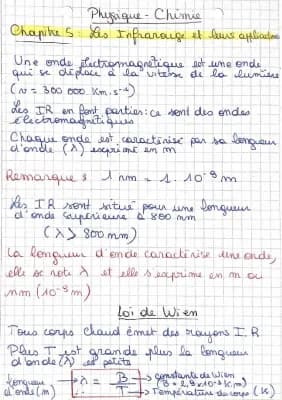 Physique-Chimie
Chapitre 5 : Les Infrarouge et leurs applications
Une onde électromagnétique est une onde
qui se déplace à la vitesse de la lumière
(v = 300 000 Km.s⁻¹)
Les IR en font parties : ce sont des ondes
électromagnétiques
Chaque onde est caractérisé par sa longueur
d'onde (λ) exprimé en m
Remarque : 1 nm = 1.10⁻⁹ m
Les IR sont situés pour une longueur
d'onde supérieure à 800 nm
(λ > 800 nm)
La longueur d'onde caractérise une onde,
elle se note λ et elle s'exprime en m ou
nm (10⁻⁹ m)
Loi de Wien
Tous corps chaud émet des rayons I.R
Plus T est grande plus la longueur
d'onde (λ) est petite
Longueur d'onde (m) ← λ = B/T → constante de Wien (B = 2,9 x 10⁻³ K.m)
→ Température du corps (K)